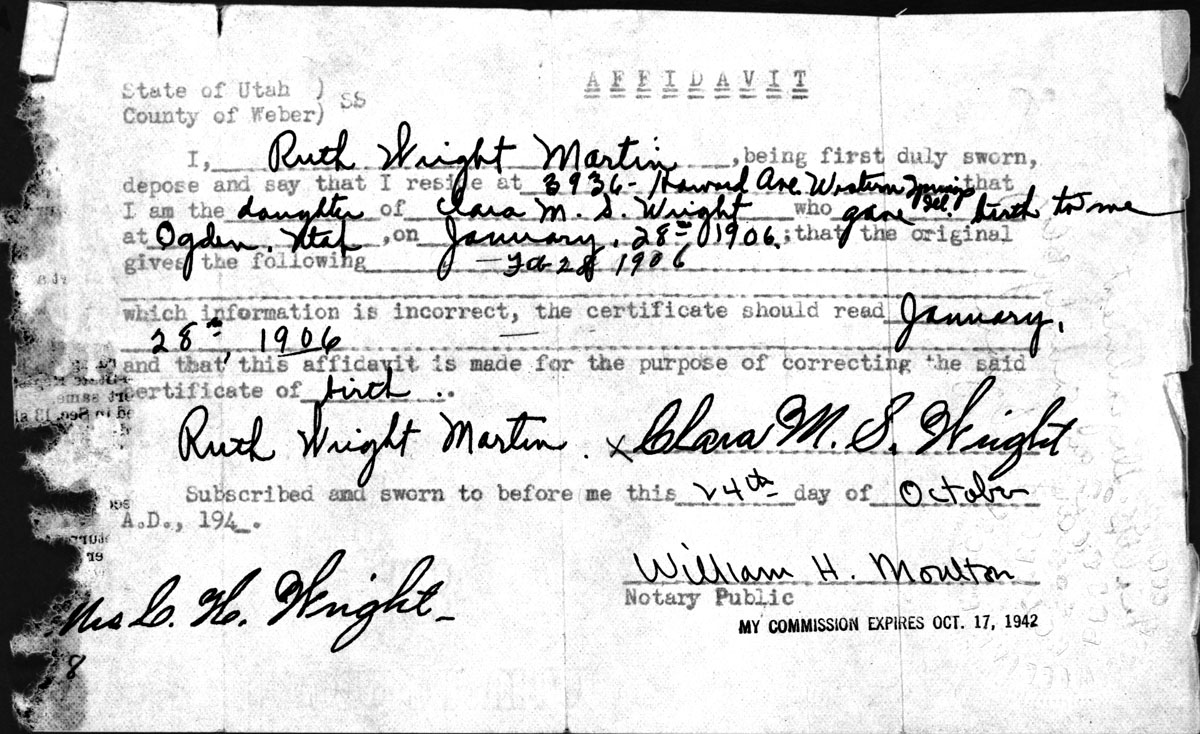 AFFIDAVIT
State of Utah )
County of Weber) SS
I, Ruth Wright Martin, being first duly sworn,
depose and say that I reside at 3936- Howard Ave Western Springs Ill. that
I am the daughter of Clara M. S. Wright who gave birth to me
at Ogden, Utah, on January, 28th 1906.; that the original
gives the following — Feb 28 1906
which information is incorrect, the certificate should read January,
28th, 1906 —
and that this affidavit is made for the purpose of correcting the said
certificate of birth ..
Ruth Wright Martin. x Clara M. S. Wright
Subscribed and sworn to before me this 24th day of October
A.D., 194_.
William H. Moulton
Notary Public
MY COMMISSION EXPIRES OCT. 17, 1942
Mrs C. H. Wright-
8